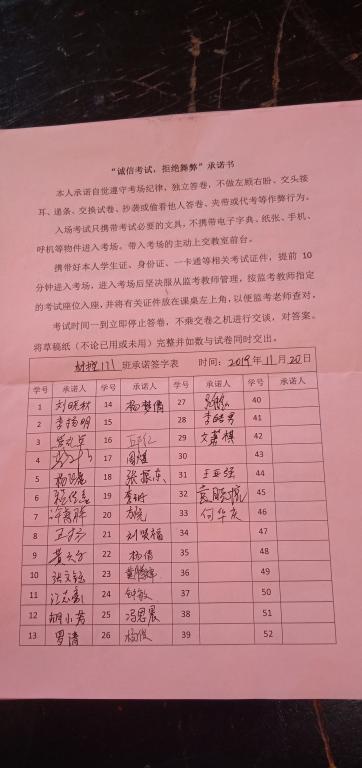 “诚信考试，拒绝舞弊”承诺书
本人承诺自觉遵守考场纪律，独立答卷，不做左顾右盼、交头接
耳、递条、交换试卷、抄袭或偷看他人答卷、夹带或代考等作弊行为。
入场考试只携带考试必要的文具，不携带电子字典、纸张、手机、
呼机等物件进入考场。带入考场的主动上交教室前台。
携带好本人学生证、身份证、一卡通等相关考试证件，提前 10
分钟进入考场，进入考场后坚决服从监考教师管理，按监考教师指定
的考试座位入座，并将有关证件放在课桌左上角，以便监考老师查对。
考试时间一到立即停止答卷，不乘交卷之机进行交谈，对答案。
将草稿纸（不论已用或未用）完整并如数与试卷同时交出。
材控171 班承诺签字表 时间：2019年11月20日
学号 承诺人 学号 承诺人 学号 承诺人 学号 承诺人
1 刘晓林 14 杨梦倩 27 40
2 李扬明 15 28 41
3 16 29 42
4 17 周健 30 43
5 18 张振东 31 王亚强 44
6 19 李珊 32 45
7 20 方亮 33 何华庆 46
8 21 34 47
9 黄文 22 杨倩 35 48
10 张文钰 23 36 49
11 24 钟敏 37 50
12 胡小芳 25 冯恩晨 38 51
13 罗清 26 杨俊 39 52